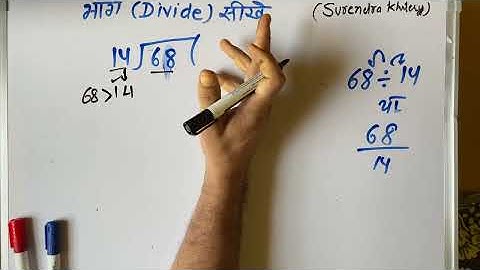 भाग (Divide) सीखे
(Surendra Khilery)
14)68(
68>14
68 ÷ 14
या
68
14